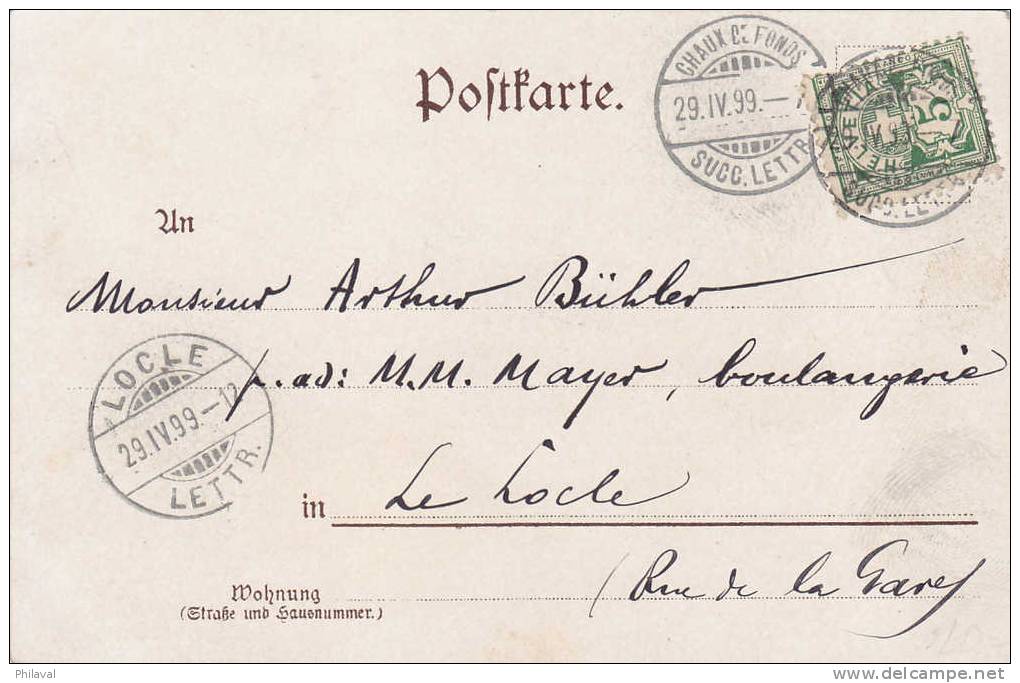 CHAUX DE FONDS
29.IV.99.—
SUCC. LETTR.
HELVETIA
5
Postkarte.
An
Monsieur Arthur Bühler
p. ad: M.M. Mayer, boulangerie
LOCLE
29.IV.99.—12
LETTR.
in Le Locle
(Rue de la Gare)
Wohnung
(Straße und Hausnummer.)
Philaval
www.delcampe.net